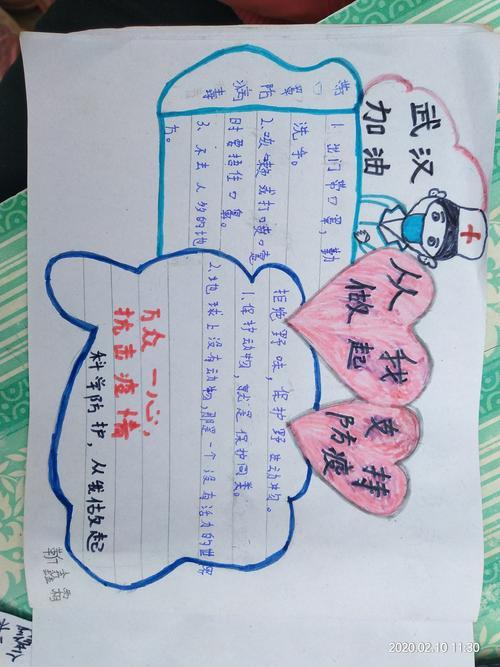 武汉
加油
从我
做起
支持
防疫
带口罩防病毒
1. 出门带口罩，勤
洗手。
2.咳嗽或打喷嚏
时要捂住口鼻。
3、不去人多的地
方。
拒绝野味，保护野生动物。
1.保护动物，就是保护同类。
2.地球上没有动物，那是一个没有活力的世界
万众一心，
抗击疫情
科学防护，从我做起
2020.02.10 11:30